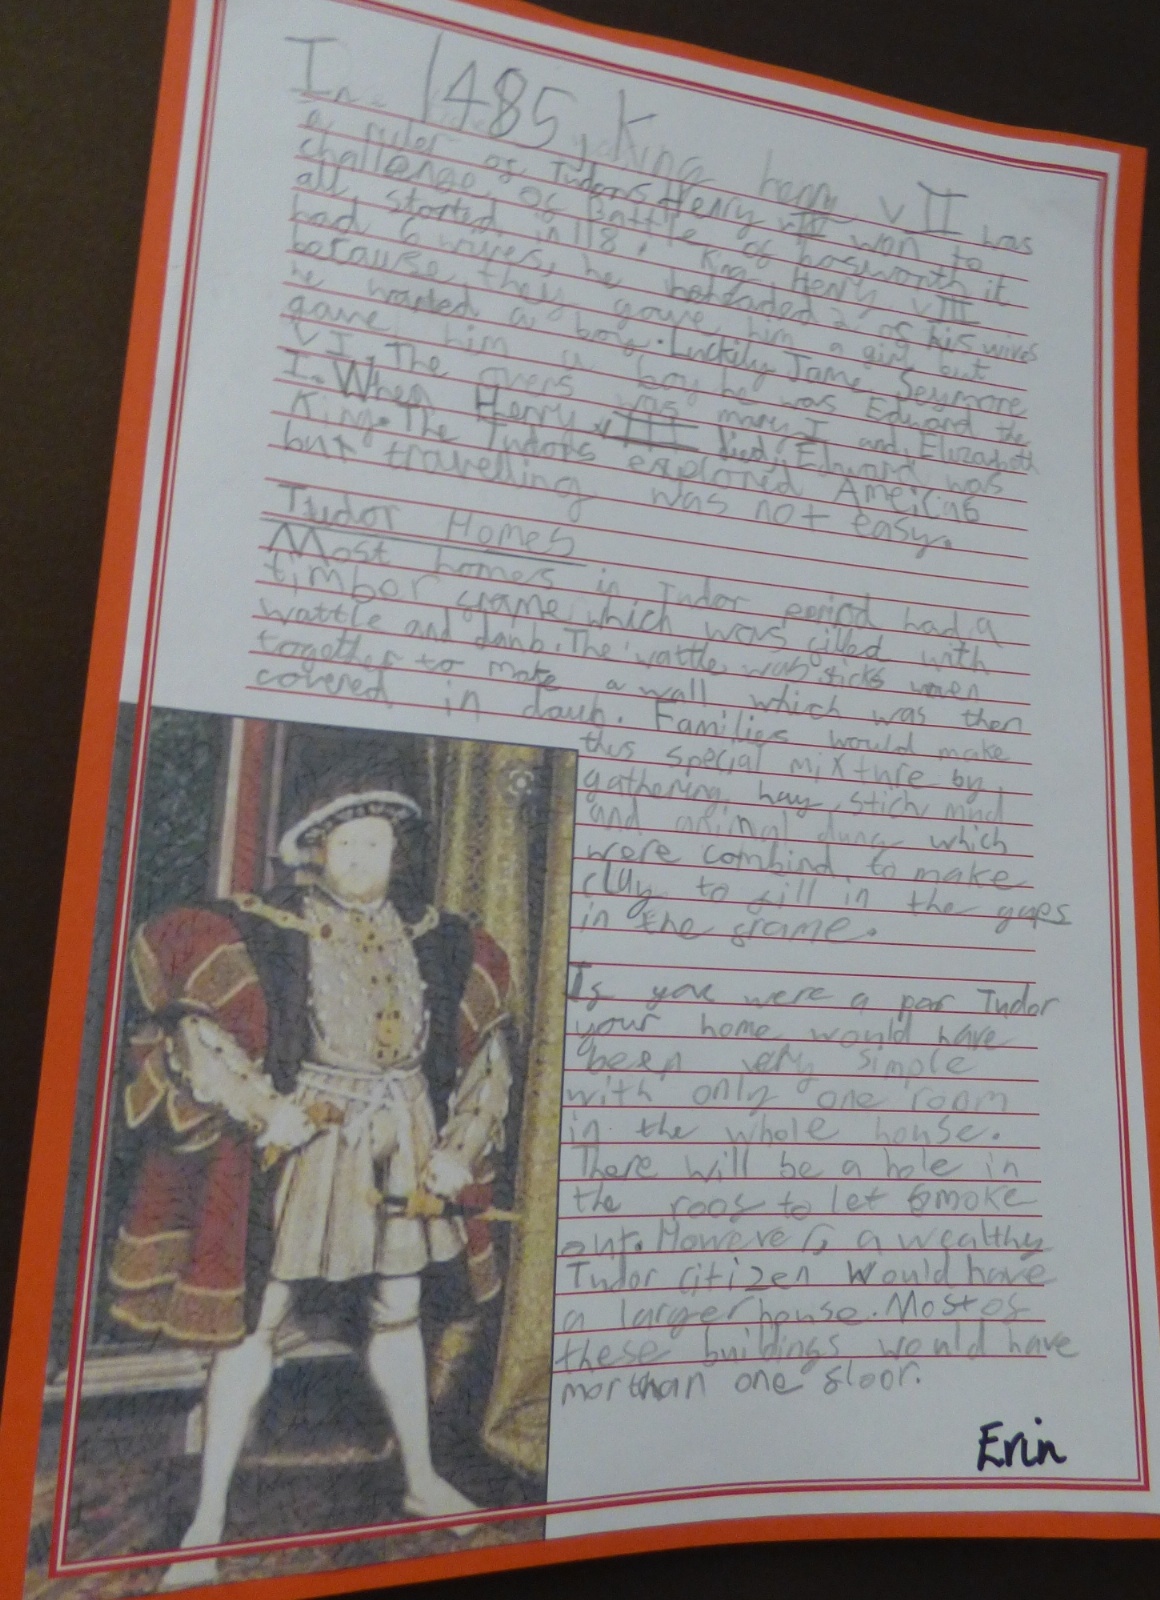 In 1485, King henry VII was
a ruler of Tudors Henry VII won to
challenge of Battle of bosworth it
all started in 118. King Henry VIII
had 6 wives, he beheaded 2 of his wives
because they gave him a girl but
he wanted a boy. Luckily Jame Seymore
gave him a boy he was Edward the
VI. The overs was mary I and Elizabeth
I. When Henry VIII died, Edward was
King. The Tudors explored
but travelling was not easy.
Tudor Homes
Most homes in Tudor period had a
timbor frame which was filled with
wattle and danb. The wattle was sticks
together to make a wall which was then
covered in daub. Families would make
this special mixture by
gathering hay, stich, mud
and animal dung which
were combind to make
clay to fill in the gaps
in the frame.
If you were a por Tudor
your home would have
been very simple
with only one room
in the whole house.
There will be a hole in
the roof to let smoke
out. However, a wealthy
Tudor citizen would have
a larger house. Most of
these buildings would have
mor than one floor.
Erin